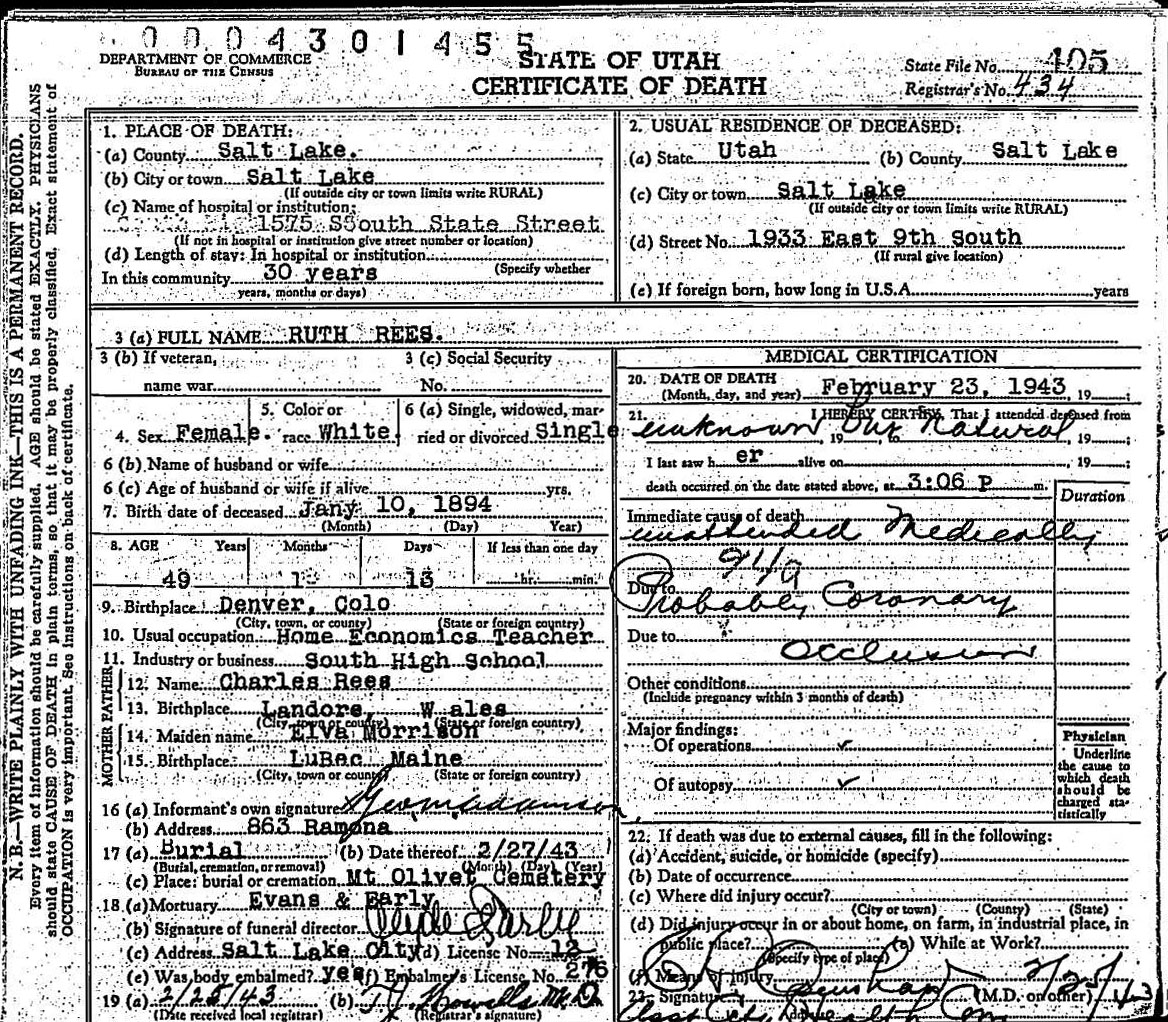 0 0 0 4 3 0 1 4 5 5
DEPARTMENT OF COMMERCE
BUREAU OF THE CENSUS
STATE OF UTAH
CERTIFICATE OF DEATH
State File No. 405
Registrar's No. 434
N. B.—WRITE PLAINLY WITH UNFADING INK—THIS IS A PERMANENT RECORD.
Every item of information should be carefully supplied. AGE should be stated EXACTLY. PHYSICIANS
should state CAUSE OF DEATH in plain terms, so that it may be properly classified. Exact statement of
OCCUPATION is very important. See instructions on back of certificate.
1. PLACE OF DEATH:
(a) County Salt Lake.
(b) City or town Salt Lake
(If outside city or town limits write RURAL)
(c) Name of hospital or institution:
1575 SSouth State Street
(If not in hospital or institution give street number or location)
(d) Length of stay: In hospital or institution
(Specify whether
In this community 30 years
years, months or days)
2. USUAL RESIDENCE OF DECEASED:
(a) State Utah (b) County Salt Lake
(c) City or town Salt Lake
(If outside city or town limits write RURAL)
(d) Street No. 1933 East 9th South
(If rural give location)
(e) If foreign born, how long in U.S.A. years
3 (a) FULL NAME RUTH REES.
3 (b) If veteran, 3 (c) Social Security
name war No.
4. Sex Female. 5. Color or race White 6 (a) Single, widowed, married or divorced Single
6 (b) Name of husband or wife
6 (c) Age of husband or wife if alive yrs.
7. Birth date of deceased Jany 10, 1894
(Month) (Day) Year)
8. AGE Years Months Days If less than one day
49 1 13 hr. min.
9. Birthplace Denver, Colo
(City, town, or county) (State or foreign country)
10. Usual occupation Home Economics Teacher
11. Industry or business South High School
FATHER
12. Name Charles Rees
13. Birthplace Landore, W ales
(City, town or county) (State or foreign country)
MOTHER
14. Maiden name Elva Morrison
15. Birthplace LuBec Maine
(City, town or county) (State or foreign country)
16 (a) Informant's own signature
(b) Address 863 Ramona
17 (a) Burial (b) Date thereof 2/27/43
(Burial, cremation, or removal) (Month) (Day) (Year)
(c) Place: burial or cremation Mt Olivet Cemetery
18 (a) Mortuary Evans & Early
(b) Signature of funeral director Clyde Early
(c) Address Salt Lake City (d) License No. 12
(e) Was body embalmed? yes (f) Embalmer's License No. 276
19 (a) 2/25/43 (b)
(Date received local registrar) (Registrar's signature)
MEDICAL CERTIFICATION
20. DATE OF DEATH
(Month, day, and year) February 23, 1943, 19
21. I HEREBY CERTIFY, That I attended deceased from
unknown but Natural, 19 , to , 19 ;
I last saw h er alive on , 19 ;
death occurred on the date stated above, at 3:06 P m.
Duration
Immediate cause of death
unattended Medically
94a
Due to
Probably Coronary
Due to
Occlusion
Other conditions
(Include pregnancy within 3 months of death)
Major findings:
Of operations ✓
Of autopsy ✓
Physician
Underline
the cause to
which death
should be
charged sta-
tistically
22. If death was due to external causes, fill in the following:
(a) Accident, suicide, or homicide (specify)
(b) Date of occurrence
(c) Where did injury occur?
(City or town) (County) (State)
(d) Did injury occur in or about home, on farm, in industrial place, in
public place? (e) While at Work?
(Specify type of place)
(f) Means of injury
23. Signature (M.D. or other)
2/25/43
Asst City Health Com
Address